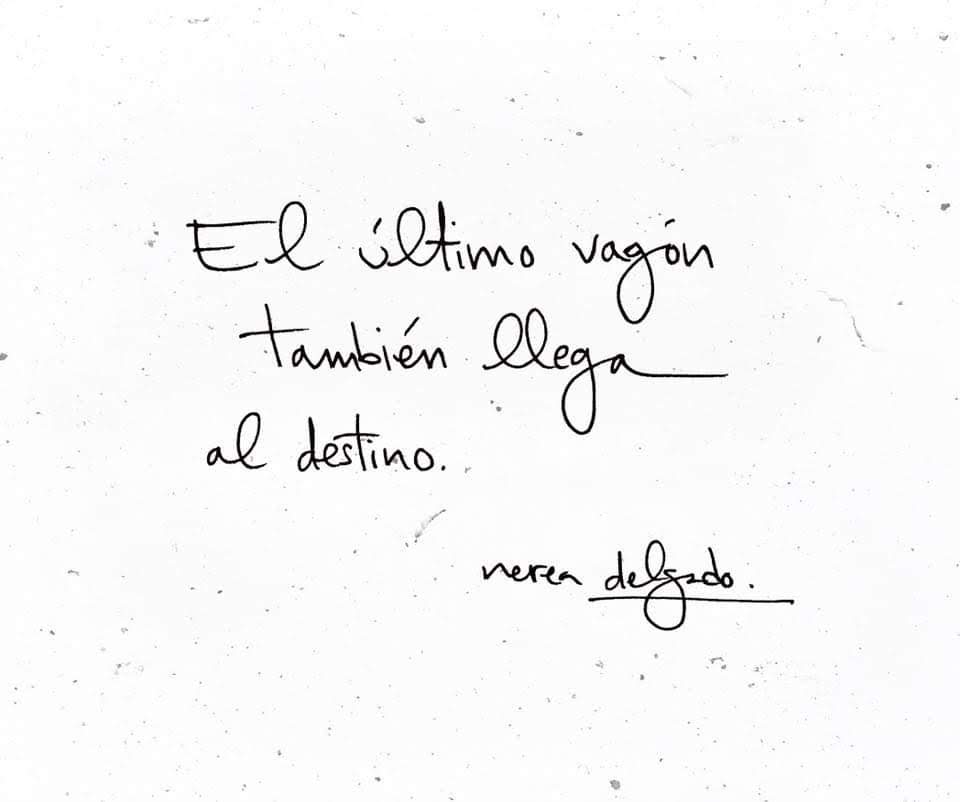 El último vagón
también llega
al destino.
nerea delgado.